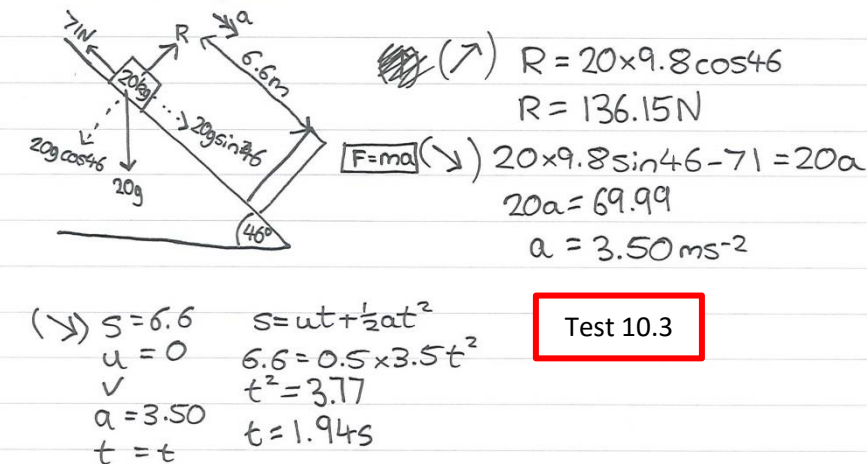 71N
R
a
6.6m
20kg
20gcos46
20gsin46
20g
46°
(↗) R = 20×9.8cos46
R = 136.15N
F=ma (↘) 20×9.8sin46-71 = 20a
20a = 69.99
a = 3.50 ms⁻²
(↘) s = 6.6
u = 0
v
a = 3.50
t = t
s = ut + ½at²
6.6 = 0.5 × 3.5t²
t² = 3.77
t = 1.94s
Test 10.3